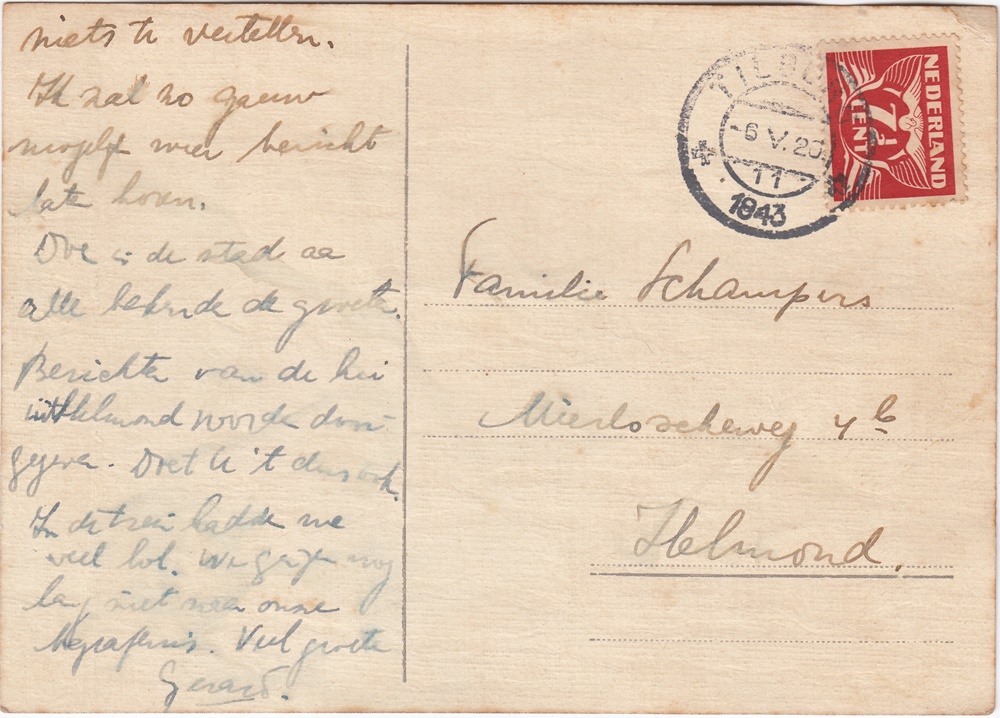 niets te vertellen.
Ik zal zo gauw
mogelijk weer bericht
late horen.
Doe in de stad aa
alle bekende de groete.
Berichte van de
uit Helmond worde door-
gegeven. Doet U 't dus ook.
In de trein hadde we
veel lol. We gaije nog
lang niet naar onze
begrafenis. Veel groete
Gerard.
TILBURG
-6 V. 20
11
1943
NEDERLAND
7½
CENT
Familie Schampers
Mierloscheweg 4b
Helmond.